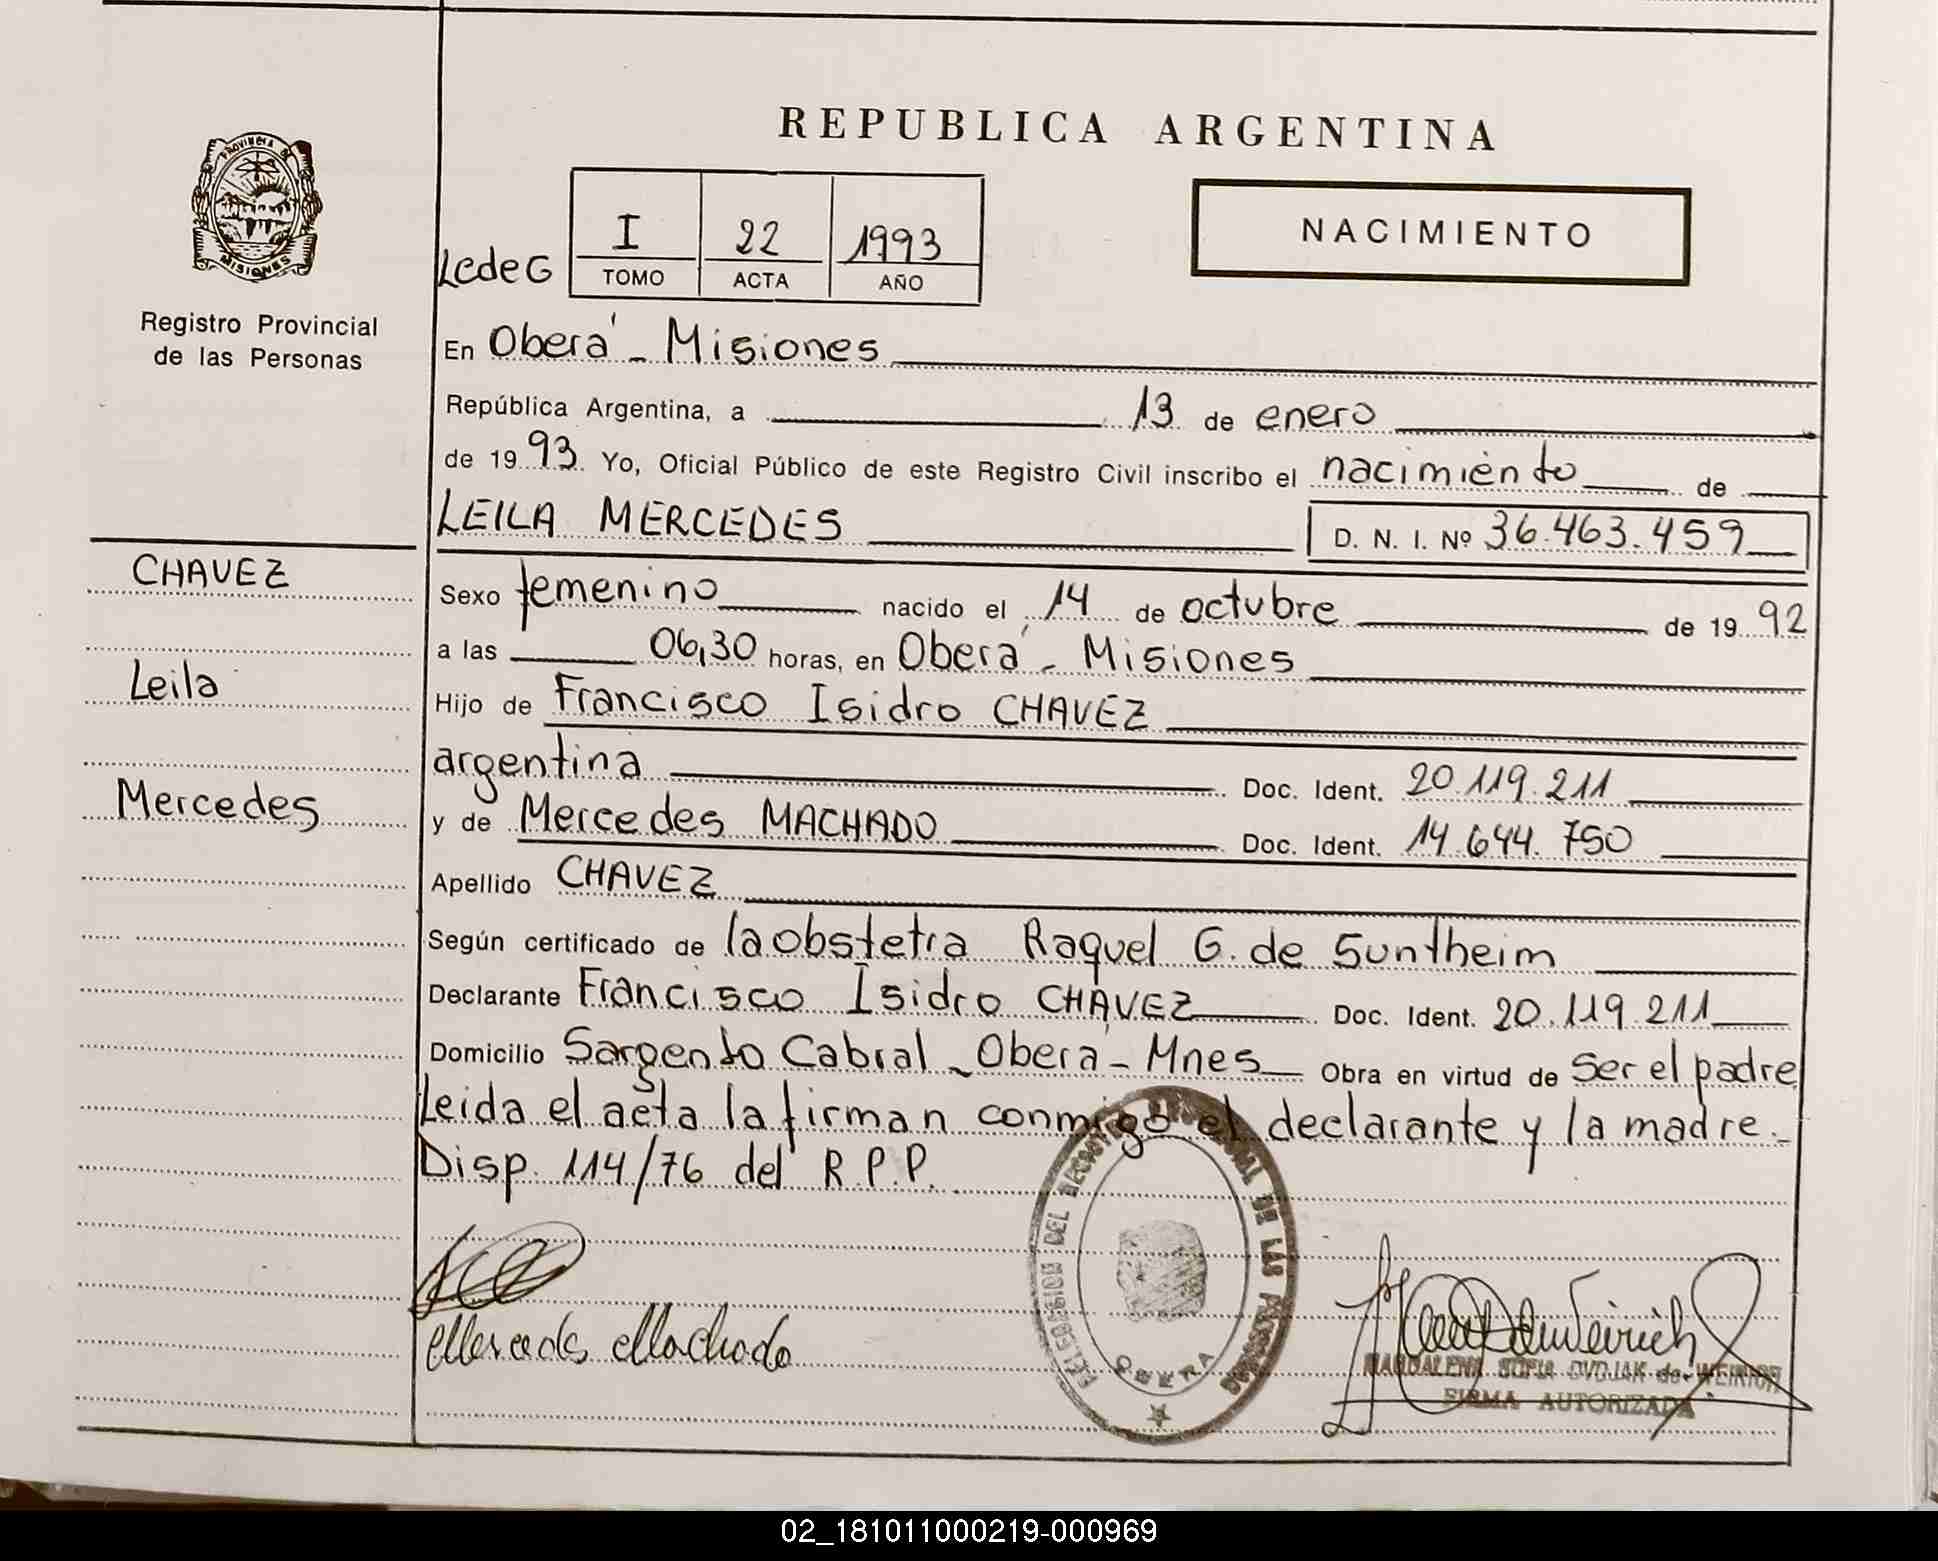 REPUBLICA ARGENTINA
PROVINCIA DE
MISIONES
Registro Provincial
de las Personas
LedeG
I 22 1993
TOMO ACTA AÑO
NACIMIENTO
En Oberá - Misiones
República Argentina, a 13 de enero
de 1993. Yo, Oficial Público de este Registro Civil inscribo el nacimiento de
LEILA MERCEDES D. N. I. Nº 36.463.459
CHAVEZ
Leila
Mercedes
Sexo femenino nacido el 14 de octubre de 1992
a las 06,30 horas, en Oberá - Misiones
Hijo de Francisco Isidro CHAVEZ
argentina Doc. Ident. 20.119.211
y de Mercedes MACHADO Doc. Ident. 14.644.750
Apellido CHAVEZ
Según certificado de la obstetra Raquel G. de Suntheim
Declarante Francisco Isidro CHAVEZ Doc. Ident. 20.119.211
Domicilio Sargento Cabral - Oberá - Mnes Obra en virtud de ser el padre
Leida el acta la firman conmigo el declarante y la madre.-
Disp. 114/76 del R.P.P.
Mercedes Machado
DELEGACION DEL REGISTRO PROVINCIAL DE LAS PERSONAS
OBERA
MAGDALENA SOFIA DVOJAK de WEIRICH
FIRMA AUTORIZADA
02_181011000219-000969